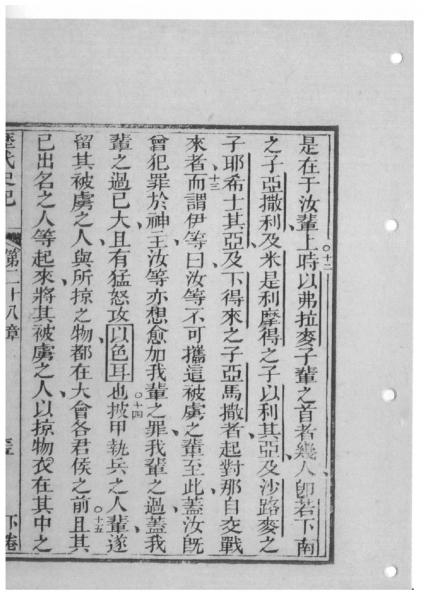 是在于汝輩上○十二時以弗拉麥子輩之首者幾人卽若下南
之子亞撒利及米是利摩得之子以利其亞及沙路麥之
子耶希士其亞及下得來之子亞馬撒者起對那自交戰
來者○十三而謂伊等曰汝等不可攜這被虜之輩至此蓋汝旣
曾犯罪於神主汝等亦想愈加我輩之罪我輩之過蓋我
輩之過已大且有猛怒攻以色耳也○十四披甲執兵之人輩遂
留其被虜之人與所掠之物都在大會各君侯之前○十五且其
已出名之人等起來將其被虜之人以掠物衣在其中之
歷代史記 第二十八章 下卷